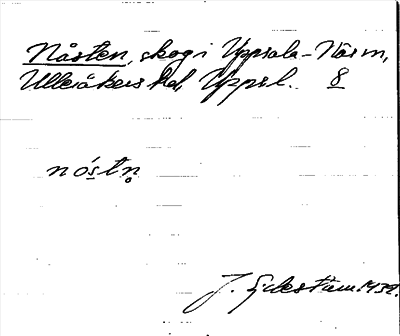 Nåsten, skog i Uppsala-Näs sn,
Ulleråkers hd, Uppsl. 8
nóstn̥
J. Eidestam 1939.